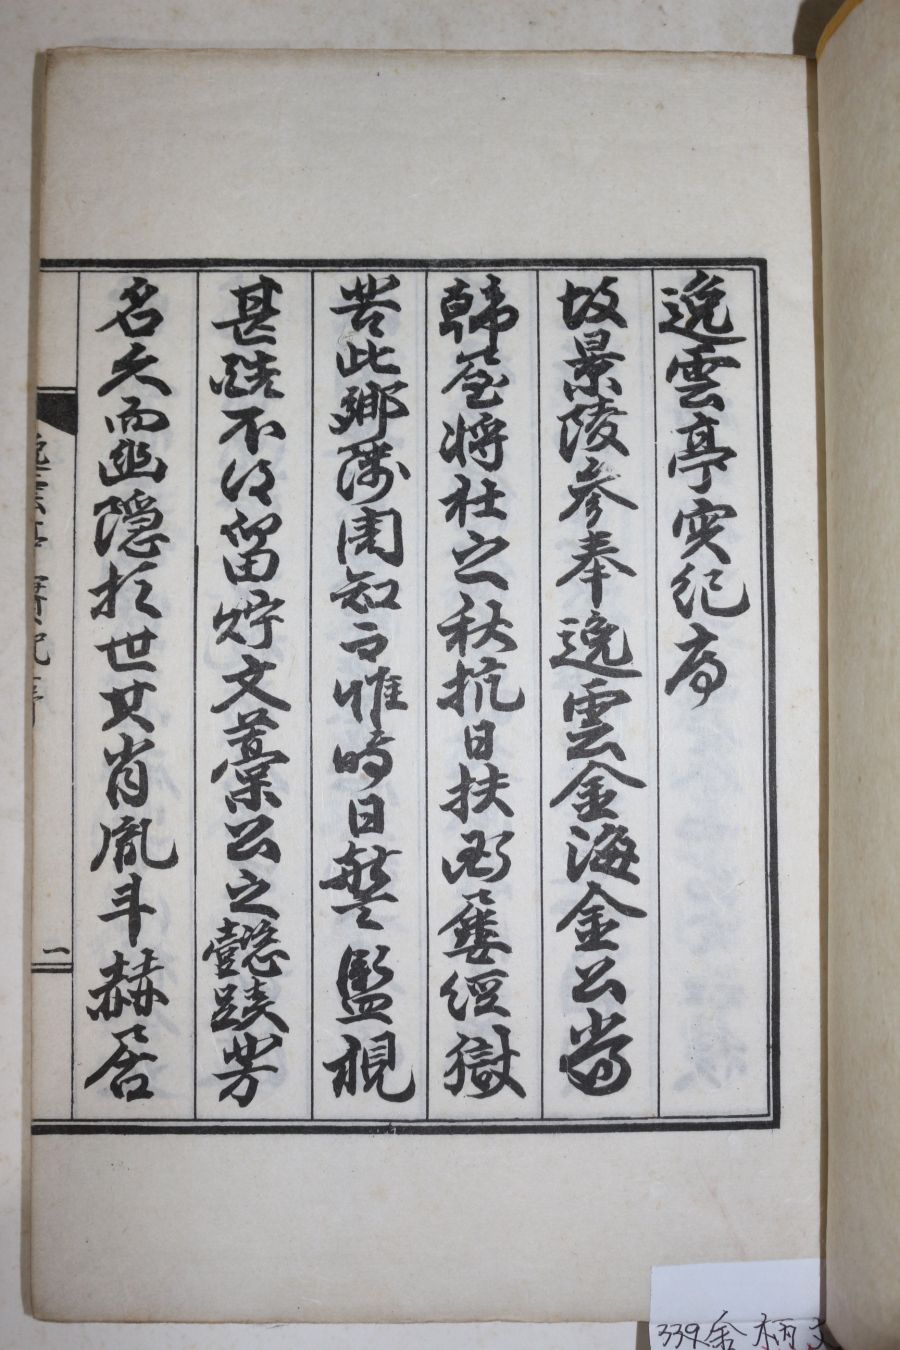 逸雲亭实紀序
故景陵參奉逸雲金海金公當
韓屋將社之秋抗日扶國屢經獄
苦此鄕隣周知而惟時日警監視
甚酷不得留貯文藁公之懿蹟芳
名久而幽隱於世其肖胤斗赫居
逸雲亭實紀序
一
339 金柄文